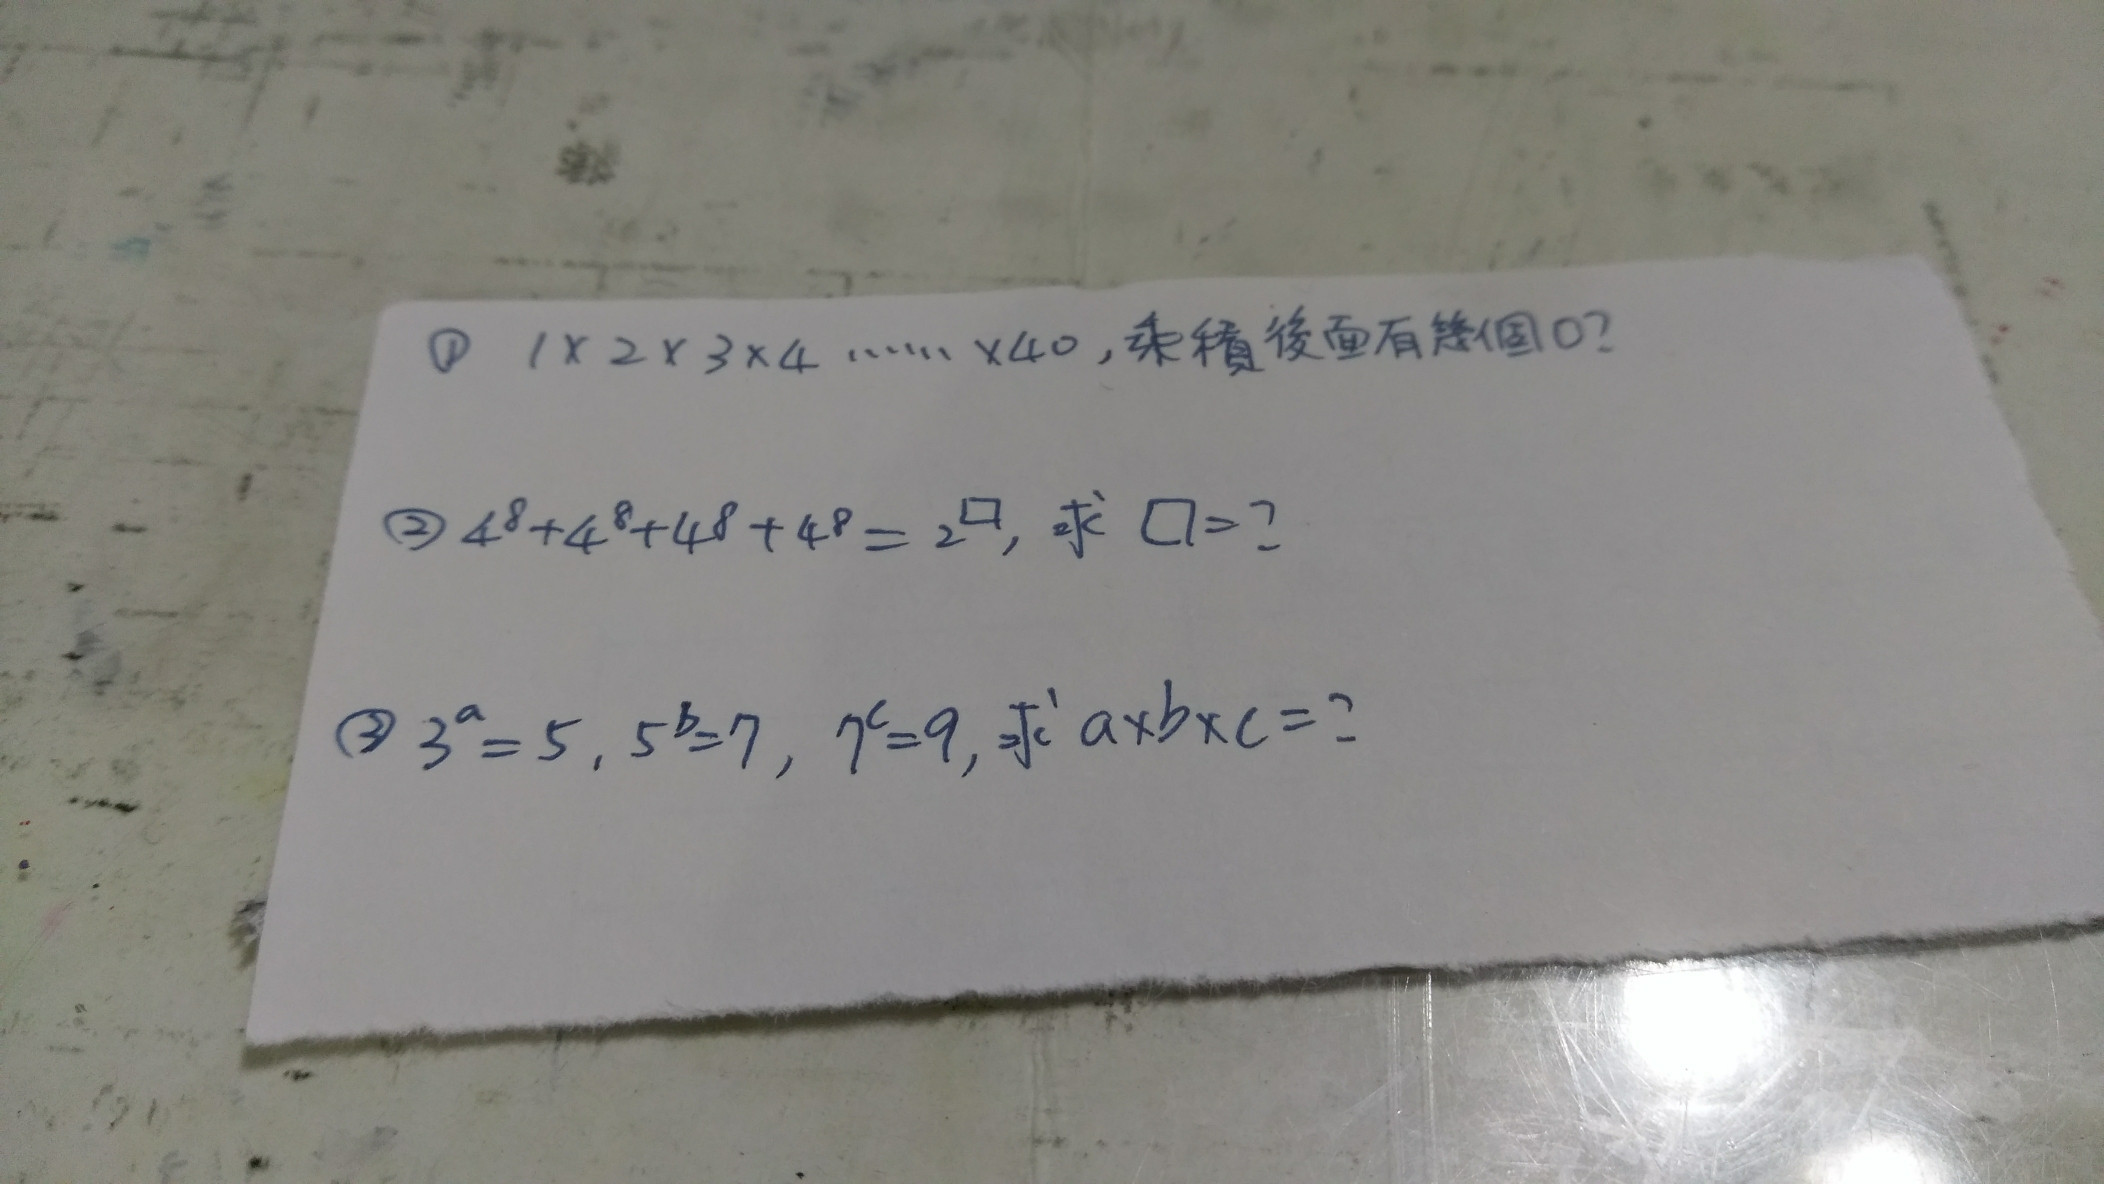 ① 1×2×3×4……×40,乘積後面有幾個0?
② 4⁸+4⁸+4⁸+4⁸=2□, 求 □=?
③ 3ᵃ=5, 5ᵇ=7, 7ᶜ=9, 求 a×b×c=?